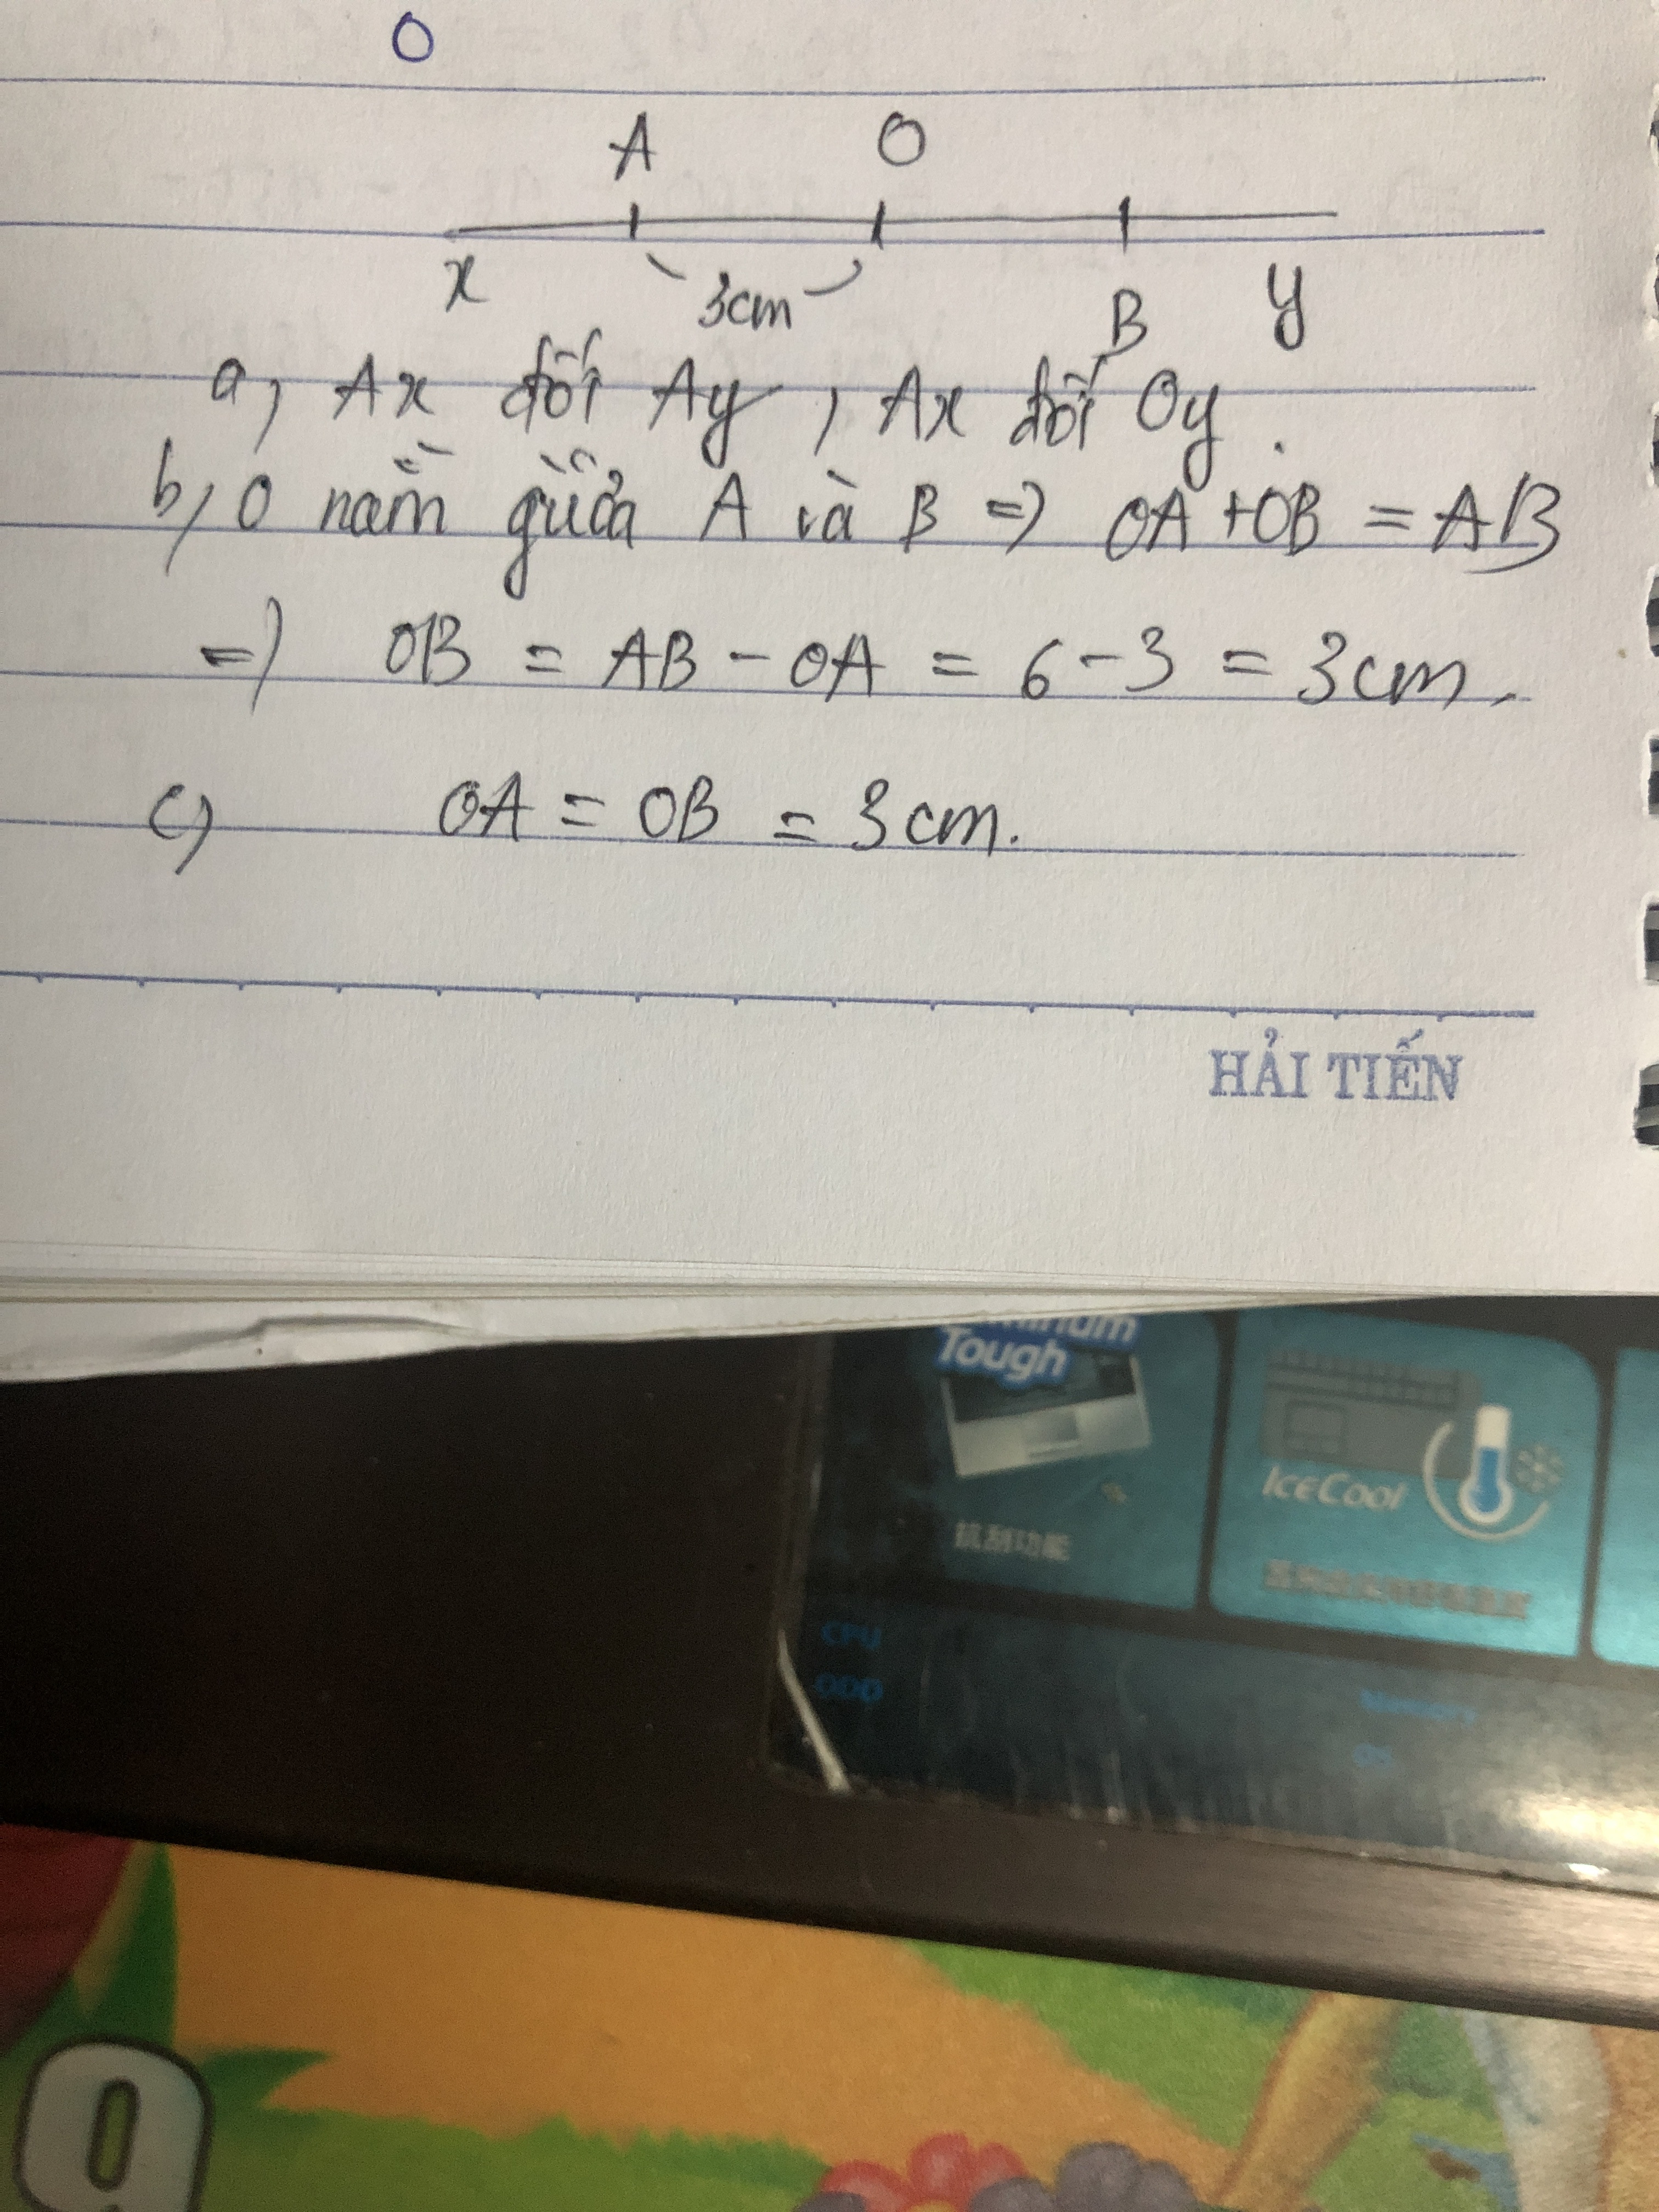 O
A O
x 3cm B y
a, Ax đối Ay, Ax đối Oy.
b, O nằm giữa A và B => OA + OB = AB
=> OB = AB - OA = 6 - 3 = 3cm.
c) OA = OB = 3cm.
HẢI TIẾN
Tough
IceCool
抗刮功能
CPU
ODD Memory
OS
9